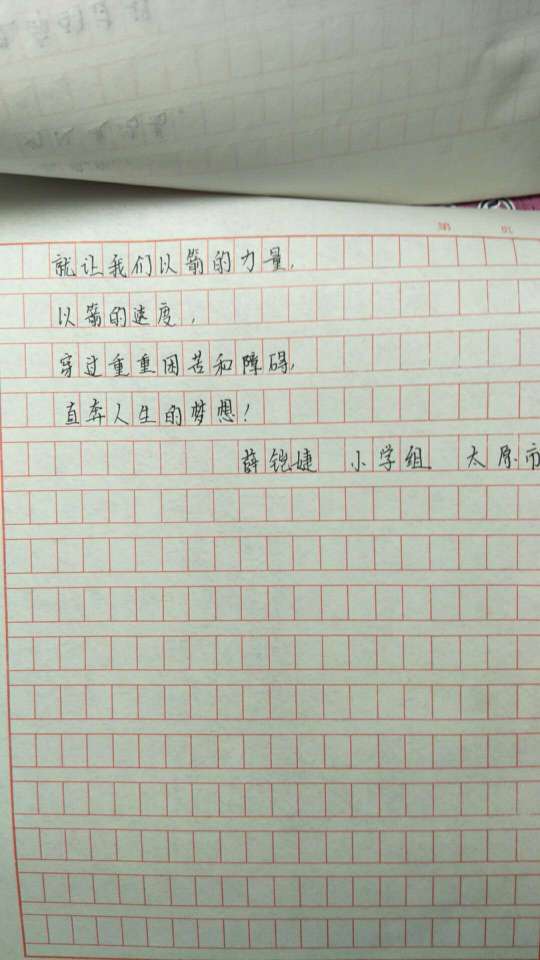 就让我们以箭的力量，
以箭的速度，
穿过重重困苦和障碍，
直奔人生的梦想！
薛铠婕 小学组 太原市